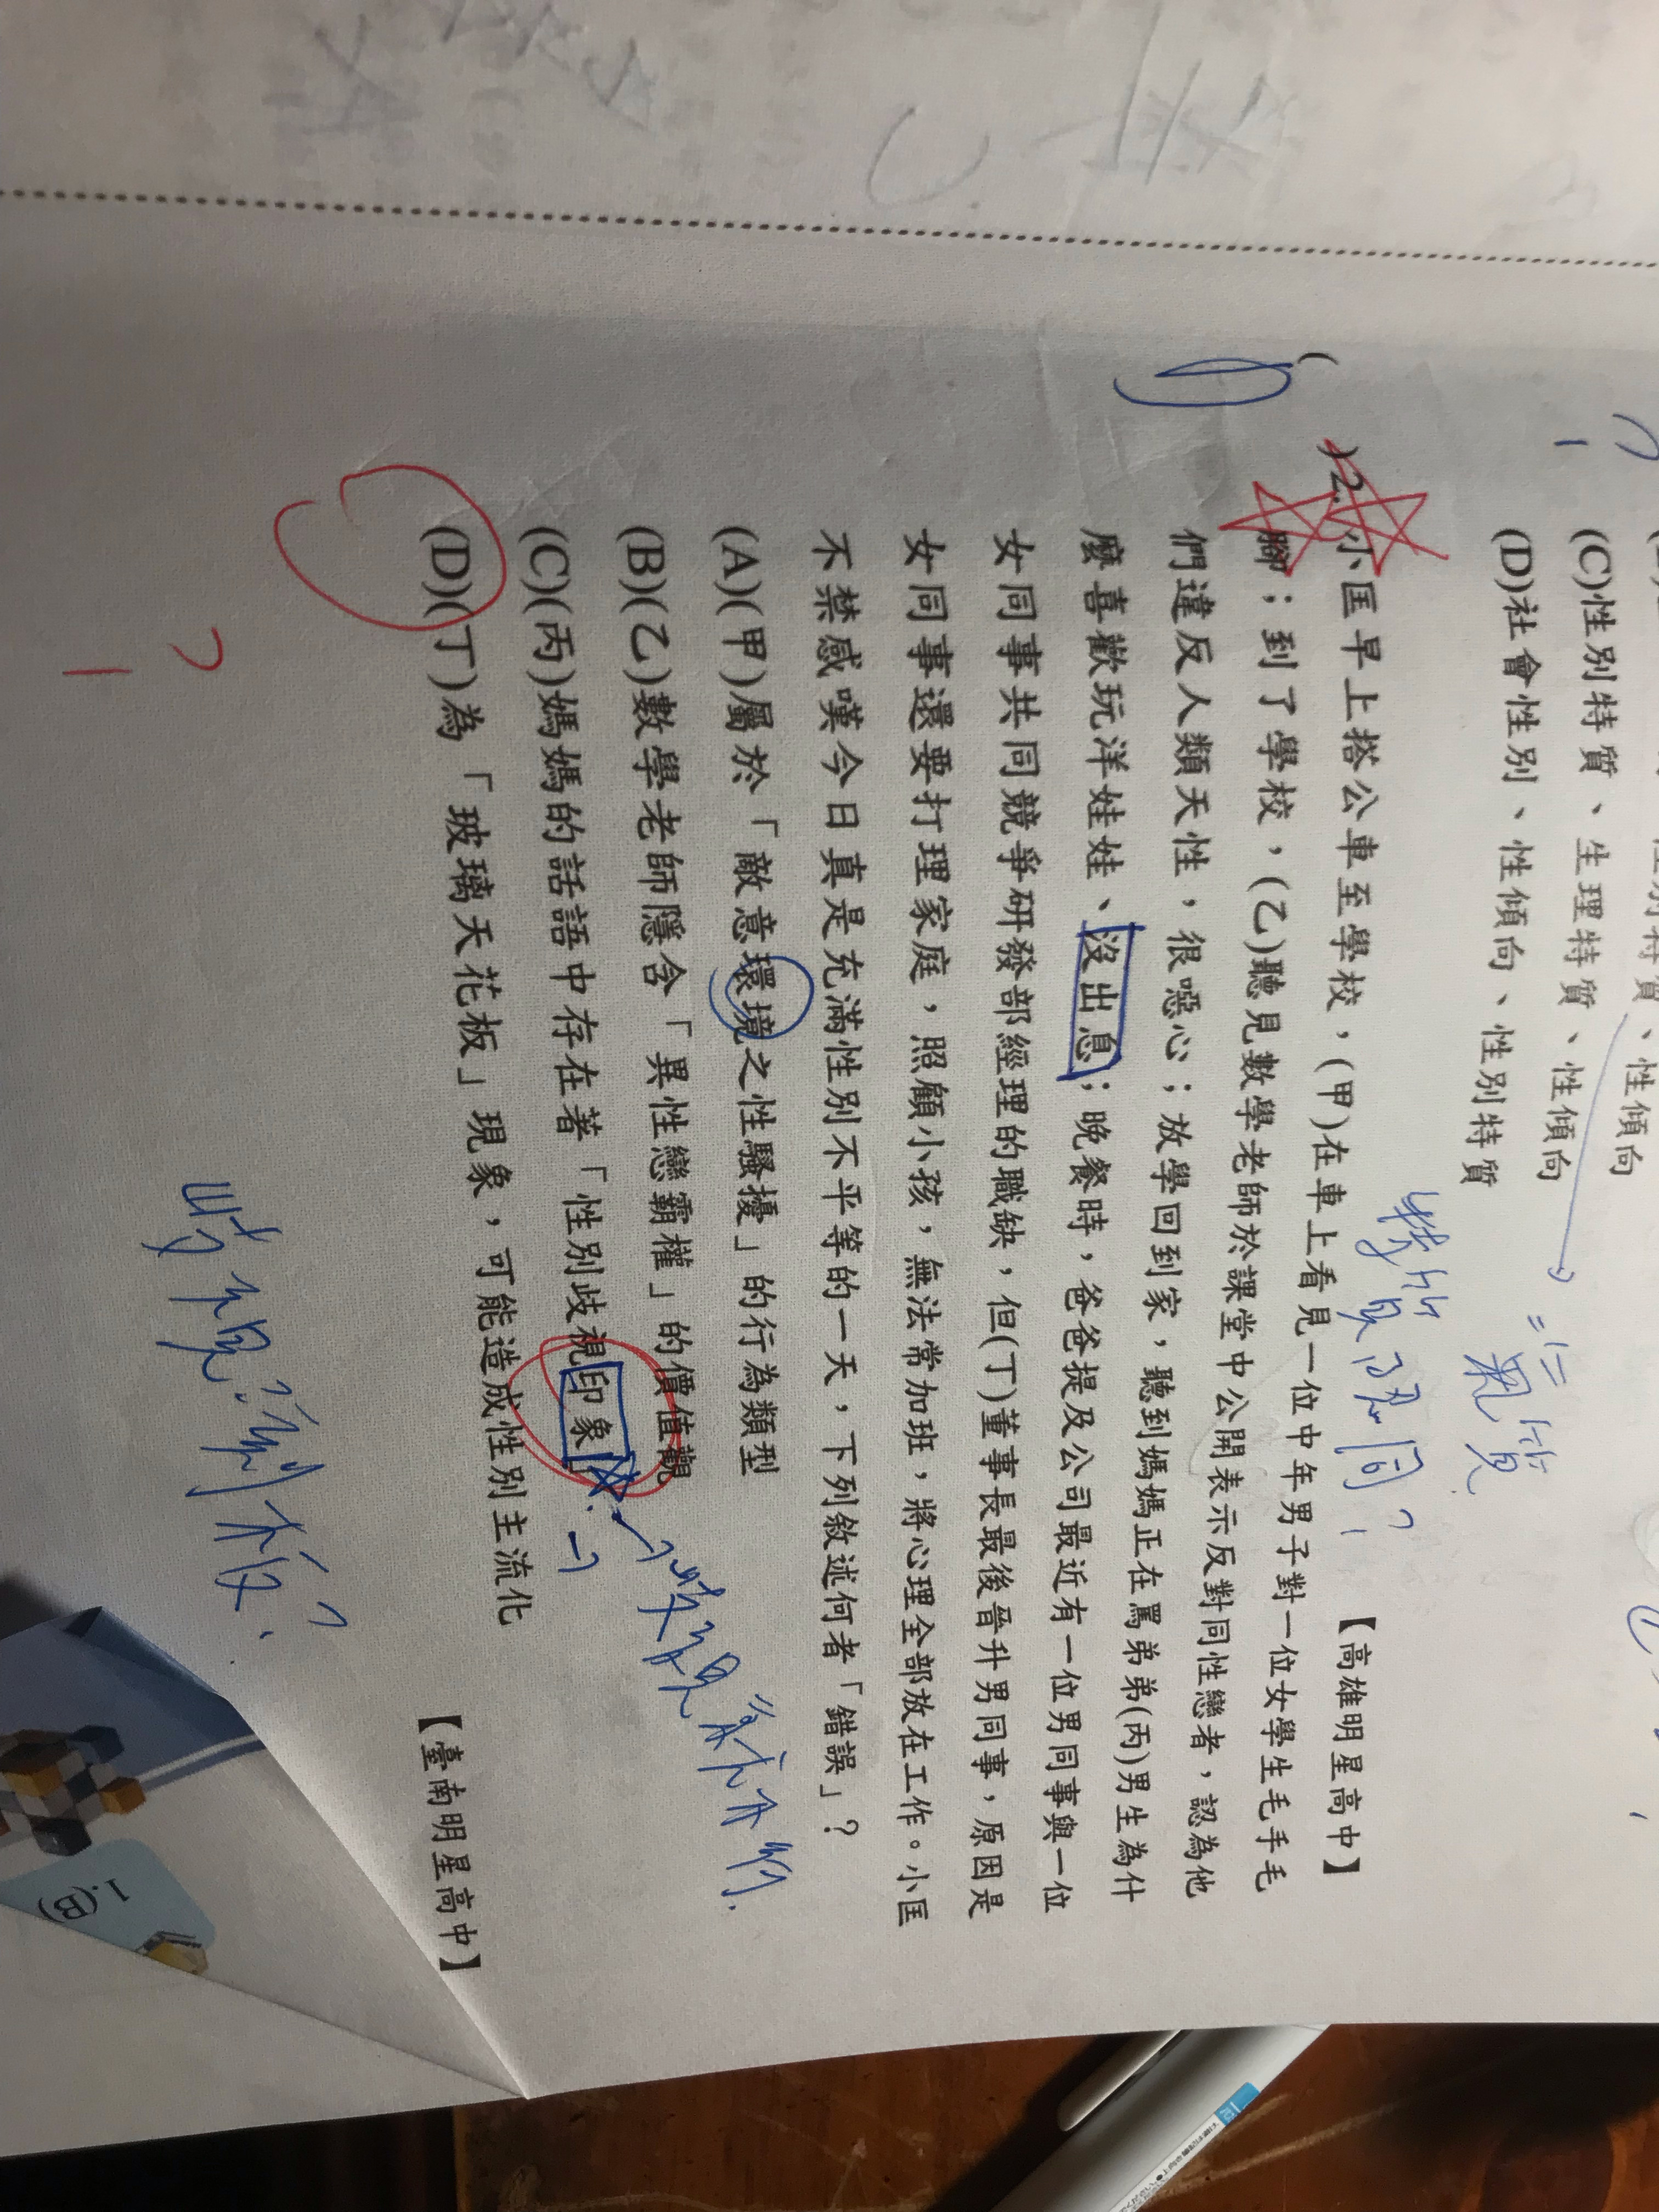 (C)性別特質、生理特質、性傾向
(D)社會性別、性傾向、性別特質
【高雄明星高中】
特質認同?
=氣質
( )2.小匡早上搭公車至學校,(甲)在車上看見一位中年男子對一位女學生毛手毛
腳;到了學校,(乙)聽見數學老師於課堂中公開表示反對同性戀者,認為他
們違反人類天性,很噁心;放學回到家,聽到媽媽正在罵弟弟(丙)男生為什
麼喜歡玩洋娃娃、沒出息;晚餐時,爸爸提及公司最近有一位男同事與一位
女同事共同競爭研發部經理的職缺,但(丁)董事長最後晉升男同事,原因是
女同事還要打理家庭,照顧小孩,無法常加班,將心理全部放在工作。小匡
不禁感嘆今日真是充滿性別不平等的一天,下列敘述何者「錯誤」?
(A)(甲)屬於「敵意環境之性騷擾」的行為類型
(B)(乙)數學老師隱含「異性戀霸權」的價值觀
(C)(丙)媽媽的話語中存在著「性別歧視印象」
(D)(丁)為「玻璃天花板」現象,可能造成性別主流化
【臺南明星高中】
1.(B)